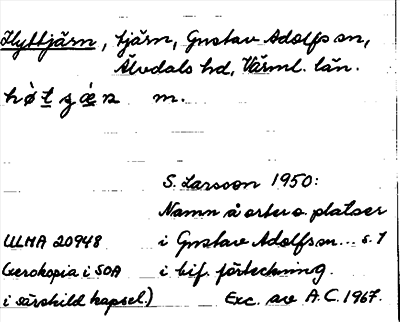 Hyttjärn, tjärn, Gustav Adolfs sn,
Älvdals hd, Värml. län.
m.
S. Larsson 1950:
Namn å orter o. platser
ULMA 20948 i Gustav Adolfs sn... s. 1
(xerokopia i SOA i bif. förteckning.
i särskild kapsel) Exc. av A.C. 1967.